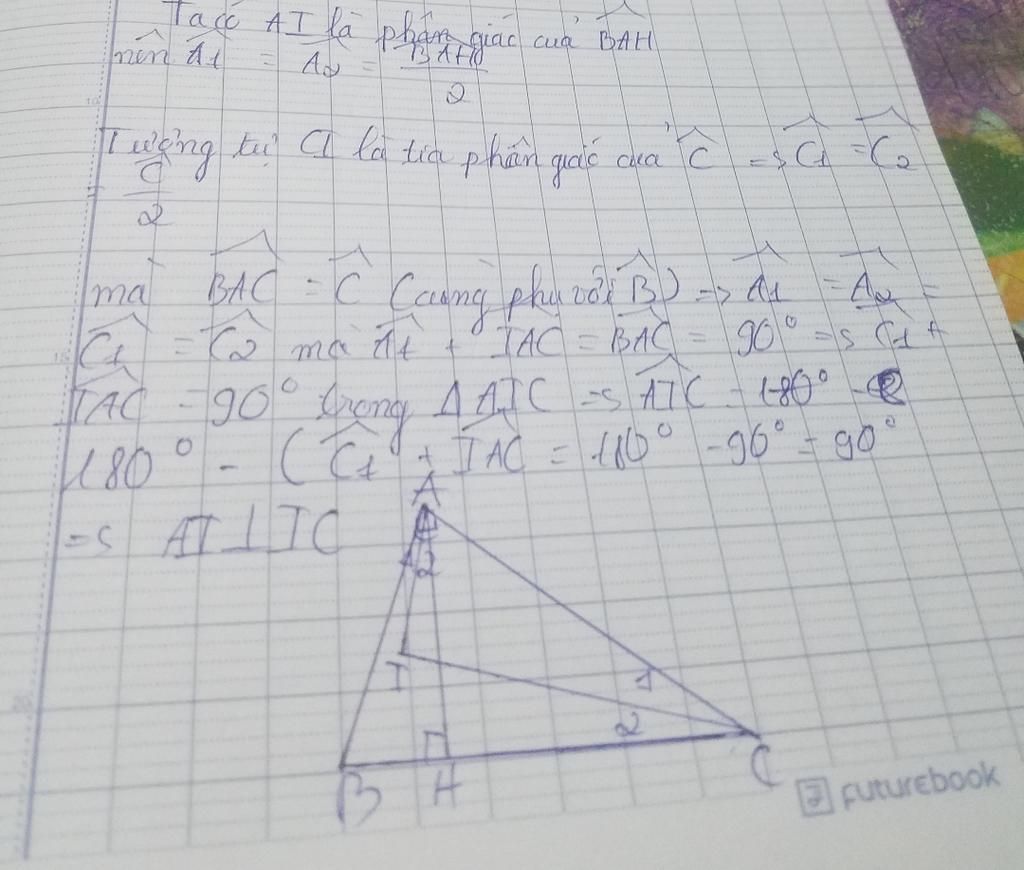 Ta có AI là phân giác của BAH
nên A1 = A2 = BAH/2
Tương tự CI là tia phân giác của C => C1 = C2
= C/2
mà BAC = C (cùng phụ với B) => A1 = A2 =
C1 = C2 mà A1 + IAC = BAC = 90° => C1 +
IAC = 90° trong ΔAIC => AIC = 180° -
180° - (C1 + IAC = 180° - 90° = 90°
=> AI ⊥ IC
A
1 2
I
1
2
B H C
futurebook